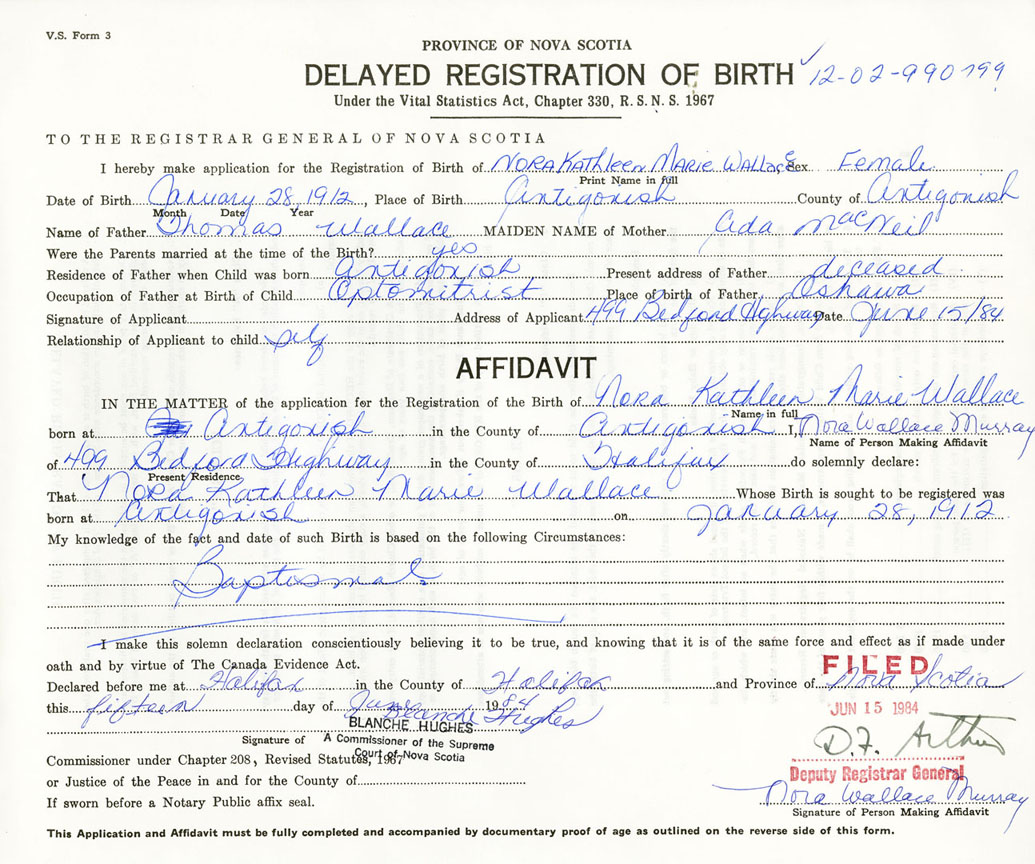 V.S. Form 3
PROVINCE OF NOVA SCOTIA
DELAYED REGISTRATION OF BIRTH 12-02-990799
Under the Vital Statistics Act, Chapter 330, R. S. N. S. 1967
TO THE REGISTRAR GENERAL OF NOVA SCOTIA
I hereby make application for the Registration of Birth of NORA Kathleen Marie Wallace Sex Female
Print Name in full
Date of Birth January 28, 1912, Place of Birth Antigonish County of Antigonish
Month Date Year
Name of Father Thomas Wallace MAIDEN NAME of Mother Ada MacNeil
Were the Parents married at the time of the Birth? yes
Residence of Father when Child was born Antigonish Present address of Father deceased
Occupation of Father at Birth of Child Optomitrist Place of birth of Father Oshawa
Signature of Applicant Address of Applicant 499 Bedford Highway Date June 15/84
Relationship of Applicant to child self
AFFIDAVIT
IN THE MATTER of the application for the Registration of the Birth of Nora Kathleen Marie Wallace
Name in full
born at Antigonish in the County of Antigonish I, Nora Wallace Murray
Name of Person Making Affidavit
of 499 Bedford Highway in the County of Halifax do solemnly declare:
Present Residence
That Nora Kathleen Marie Wallace Whose Birth is sought to be registered was
born at Antigonish on January 28, 1912
My knowledge of the fact and date of such Birth is based on the following Circumstances:
Baptismal
I make this solemn declaration conscientiously believing it to be true, and knowing that it is of the same force and effect as if made under
oath and by virtue of The Canada Evidence Act.
FILED
Declared before me at Halifax in the County of Halifax and Province of Nova Scotia
this fifteen day of June 1984
JUN 15 1984
Blanche Hughes
BLANCHE HUGHES
Signature of A Commissioner of the Supreme
Court of Nova Scotia
D.F. Arthur
Commissioner under Chapter 208, Revised Statutes, 1967
Deputy Registrar General
or Justice of the Peace in and for the County of
Nora Wallace Murray
If sworn before a Notary Public affix seal.
Signature of Person Making Affidavit
This Application and Affidavit must be fully completed and accompanied by documentary proof of age as outlined on the reverse side of this form.